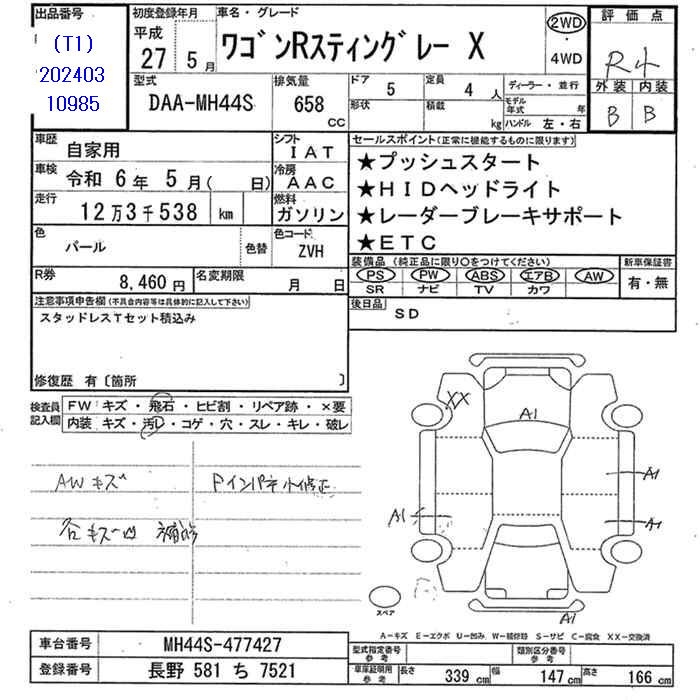 出品番号
(T1)
202403
10985
初度登録年月
平成
27 5月
車名・グレード
ワゴンRスティングレー X
2WD
・
4WD
評価点
R4
外装 内装
B B
型式
DAA-MH44S
排気量
658
CC
ドア
5
定員
4 人
形状
積載
kg
ディーラー・並行
モデル年式 年
ハンドル 左・右
車歴
自家用
シフト
IAT
車検
令和 6年 5月( 日)
冷房
AAC
走行
12万3千538 km
燃料
ガソリン
色
パール
色替
色コード
ZVH
R券
8,460円
名変期限
月 日
セールスポイント(正常に機能するものに限ります)
★プッシュスタート
★HIDヘッドライト
★レーダーブレーキサポート
★ETC
装備品 (純正品に限り○をつけてください)
PS PW ABS エアB AW
SR ナビ TV カワ
新車保証書
有・無
後日品
SD
注意事項申告欄(不具合内容等は具体的に記入して下さい)
スタッドレスTセット積込み
修復歴 有〔箇所 〕
検査員記入欄
FW キズ・飛石・ヒビ割・リペア跡・×要
内装 キズ・汚レ・コゲ・穴・スレ・キレ・破レ
AWキズ
Fインパネ小修正
各キズ凹 補修
XX
A1
A1
A1
A1
A1
スペア
A-キズ E-エクボ U-凹み W-補修跡 S-サビ C-腐食 XX-交換済
車台番号
MH44S-477427
登録番号
長野 581 ち 7521
型式指定番号
参考
類別区分番号
参考
車庫証明用
参考
長さ 339 cm 幅 147 cm 高さ 166 cm